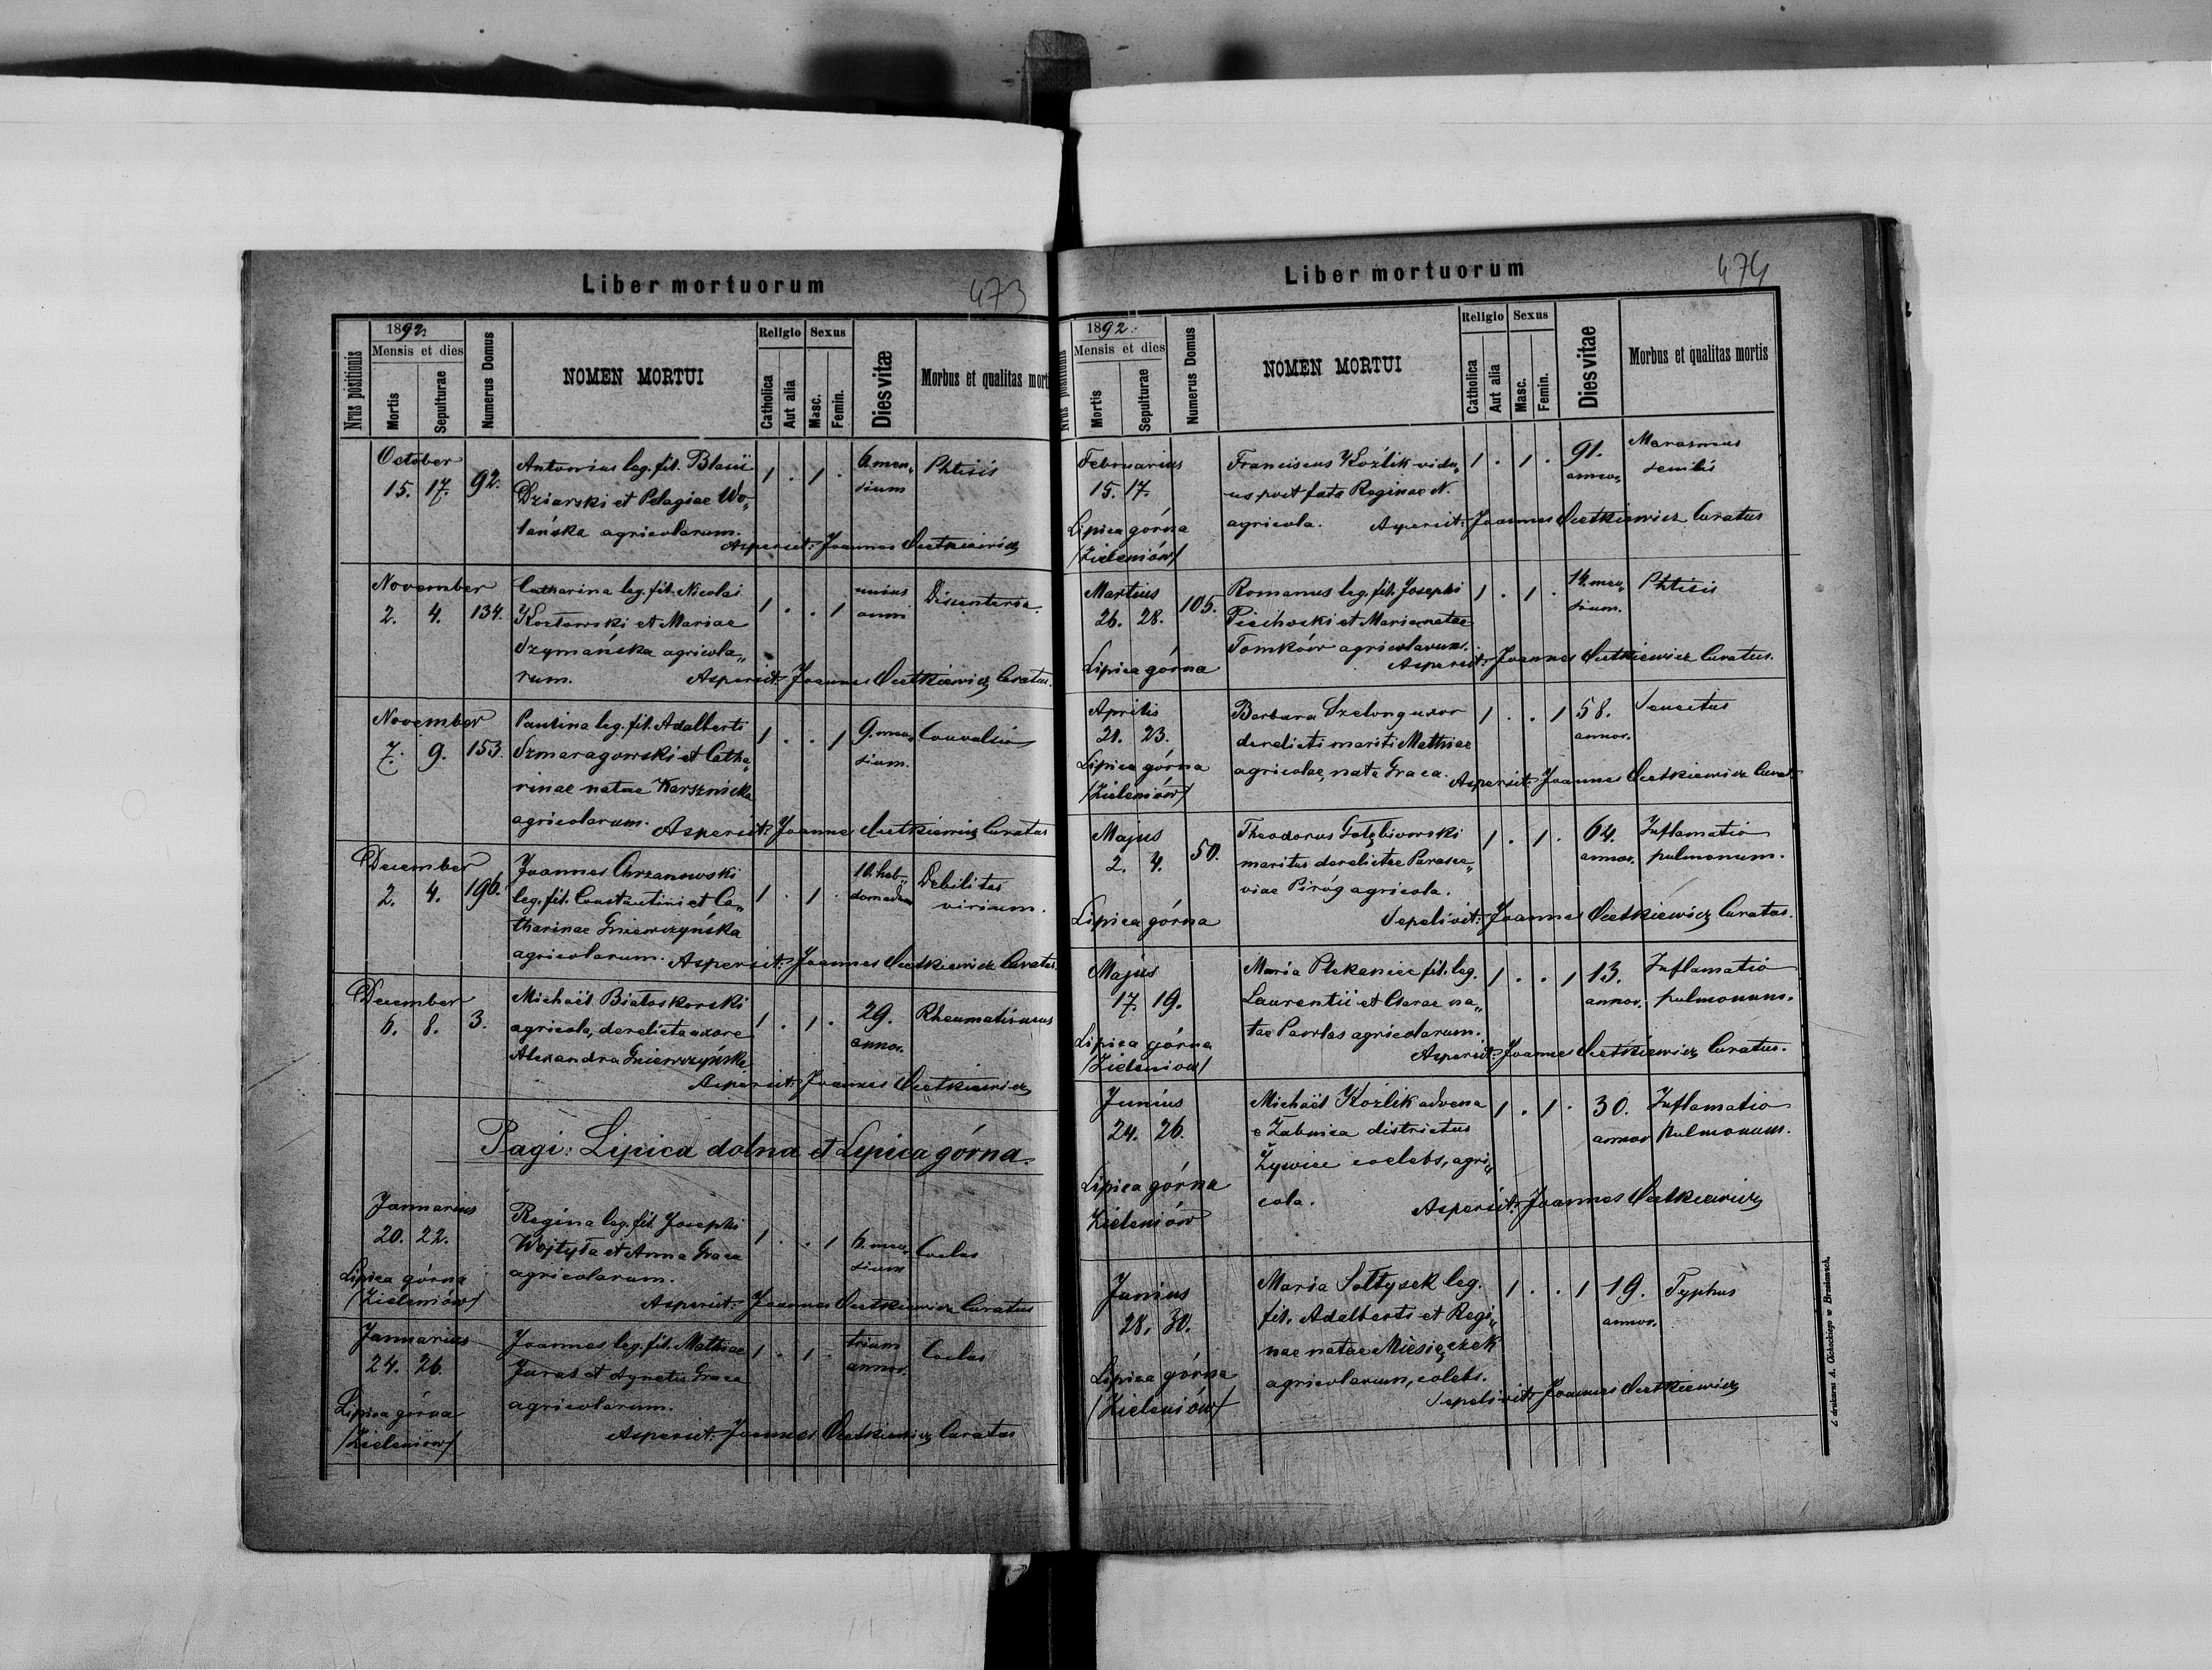 Liber mortuorum
473
Nrus positionis
1892
Mensis et dies
Mortis
Sepulturae
Numerus Domus
NOMEN MORTUI
Religio
Catholica
Aut alia
Sexus
Masc.
Femin.
Dies vitæ
Morbus et qualitas mort
October
15. 17. 92.
Antonius leg. fil. Blasii
Dziarski et Pelagiae Wo„
leńska agricolarum.
1 . 1 .
6. men„
sium
Phtisis
Aspersit: Joannes
November
2. 4. 134.
Catharina leg. fil. Nicolai
Kozłowski et Mariae
Szymańska agricola„
rum.
1 . . 1
unius
anni
Dissenteria.
Aspersit: Joannes Curatus.
November
7. 9. 153.
Paulina leg. fil. Adalberti
Szmaragowski et Catha„
rinae natae Karsznicka
agricolarum.
1 . . 1
9. men„
sium.
Convulsio
Aspersit: Joannes Curatus
December
2. 4. 196.
Joannes Chrzanowski
leg. fil. Constantini et Ca„
tharinae Gniewczyńska
agricolarum.
1 . 1 .
10. heb„
domadum
Debilitas
virium.
Aspersit: Joannes Curatus.
December
6. 8. 3.
Michaël Białoskorski
agricola, derelicta uxore
Alexandra Gniewczyńska
1 . 1 .
29.
annor.
Rheumatismus
Aspersit: Joannes
Pagi: Lipica dolna et Lipica górna.
Januarius
20. 22.
Lipica górna
/Zieleniów/
Regina leg. fil. Josephi
Wojtyła et Anna Graca
agricolarum.
1 . . 1
6. men„
sium
Aspersit: Joannes Curatus
Januarius
24. 26.
Lipica górna
/Zieleniów/
Joannes leg. fil. Mathiae
Juras et Agnetis Graca
agricolarum.
1 . 1 .
trium
annor.
Aspersit: Joannes Curatus
Liber mortuorum
474
Nrus positionis
1892.
Mensis et dies
Mortis
Sepulturae
Numerus Domus
NOMEN MORTUI
Religio
Catholica
Aut alia
Sexus
Masc.
Femin.
Dies vitae
Morbus et qualitas mortis
Februarius
15. 17.
Lipica górna
/Zieleniów/
Franciscus Koźlik vidu„
us post fata Reginae N.
agricola.
1 . 1 .
91.
annor.
Marasmus
senilis
Aspersit: Joannes Curatus
Martius
26. 28. 105.
Lipica górna
Romanus leg. fil. Josephi
Piechocki et Maria natae
Tomków agricolarum.
1 . 1 .
14. men„
sium.
Phtisis
Aspersit: Joannes Curatus.
Aprilis
21. 23.
Lipica górna
/Zieleniów/
Barbara Szelong uxor
derelicti mariti Mathiae
agricolae, nata Graca.
1 . . 1
58.
annor.
Senectus
Aspersit: Joannes Curat.
Majus
2. 4. 50.
Lipica górna
Theodorus Gołębiowski
maritus derelictae Parasce„
viae Piróg agricola.
1 . 1 .
64.
annor.
Inflamatio
pulmonum.
Sepelivit: Joannes Curatus.
Majus
17. 19.
Lipica górna
/Zieleniów/
Maria Plekaniec fil. leg.
Laurentii et Clarae na„
tae Pawlas agricolarum.
1 . . 1
13.
annor.
Inflamatio
pulmonum.
Aspersit: Joannes Curatus.
Junius
24. 26.
Lipica górna
Zieleniów
Michaël Koźlik advena
e Żabnica districtus
Żywiec coelebs, agri„
cola.
1 . 1 .
30.
annor
Inflamatio
pulmonum.
Aspersit: Joannes
Junius
28. 30.
Lipica górna
/Zieleniów/
Maria Sołtysek leg.
fil. Adalberti et Regi„
nae natae Miesiączek
agricolarum, colebs.
1 . . 1
19.
annor.
Typhus
Sepelivit: Joannes
Z drukarni A. Cichockiego w Brzeżanach.